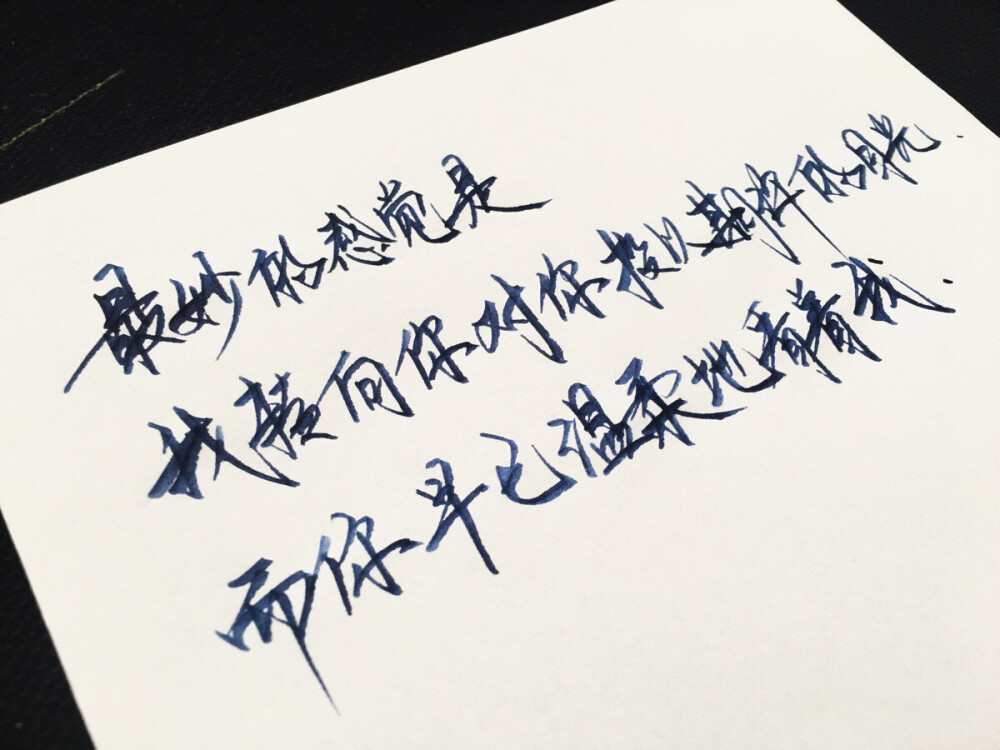 最妙的感觉是
我转向你对你投以期待的目光.
而你早已温柔地看着我.